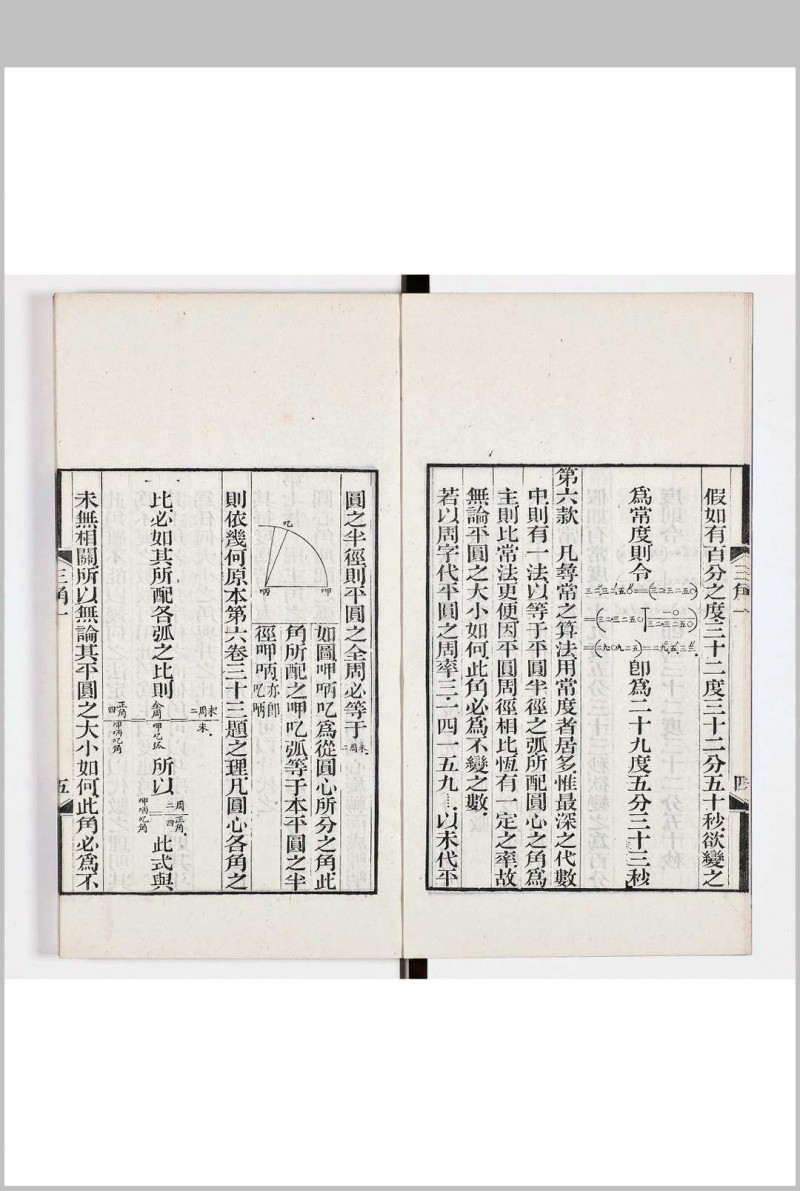 假如有百分之度三十二度三十二分五十秒欲變之
爲常度則令
即爲二十九度五分三十三秒
第六款 凡尋常之算法用常度者居多惟最深之代數
中則有一法以等于平圓半徑之弧所配圓心之角爲
主則比常法更便因平圓周徑相比恆有一定之率故
無論平圓之大小如何此角必爲不變之數
若以周字代平圓之周率三一四一五九⋯以未代平
三角一
四
圓之半徑則平圓之全周必等于二周未
吃
呷
唡
如圖呷唡吃爲從圓心所分之角此
角所配之呷吃弧等于本平圓之半
徑呷唡亦卽吃唡
則依幾何原本第六卷三十三題之理凡圓心各角之
比必如其所配各弧之比則
四正角
呷唡吃角
全周
呷吃弧
二周未
未
所以
呷唡吃角
二周
四正角
此式與
未無相關所以無論其平圓之大小如何此角必爲不
三角一
五